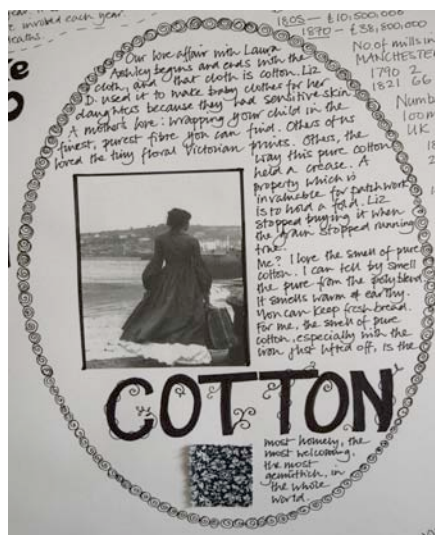 e involved each year.
deaths.
1805 — £10,500,000
1870 — £38,800,000
No. of mills in
MANCHESTER
1790 2
1821 66
Numb
loom
UK
Our love affair with Laura
Ashley begins and ends with the
cloth, and that cloth is cotton. Liz
D. used it to make baby clothes for her
daughters because they had sensitive skin
A mother's love: wrapping your child in the
finest, purest fibre you can find. Others of us
loved the tiny floral Victorian prints. Others, the
way this pure cotton
held a crease. A
property which is
invaluable for patchwork
is to hold a fold. Liz
stopped buying it when
the grain stopped running
true.
Me? I love the smell of pure
cotton. I can tell by smell
the pure from the polyblend
It smells warm & earthy.
You can keep fresh bread.
For me, the smell of pure
cotton, especially with the
iron just lifted off, is the
COTTON
most homely, the
most welcoming,
the most
gemütlich, in
the whole
world.